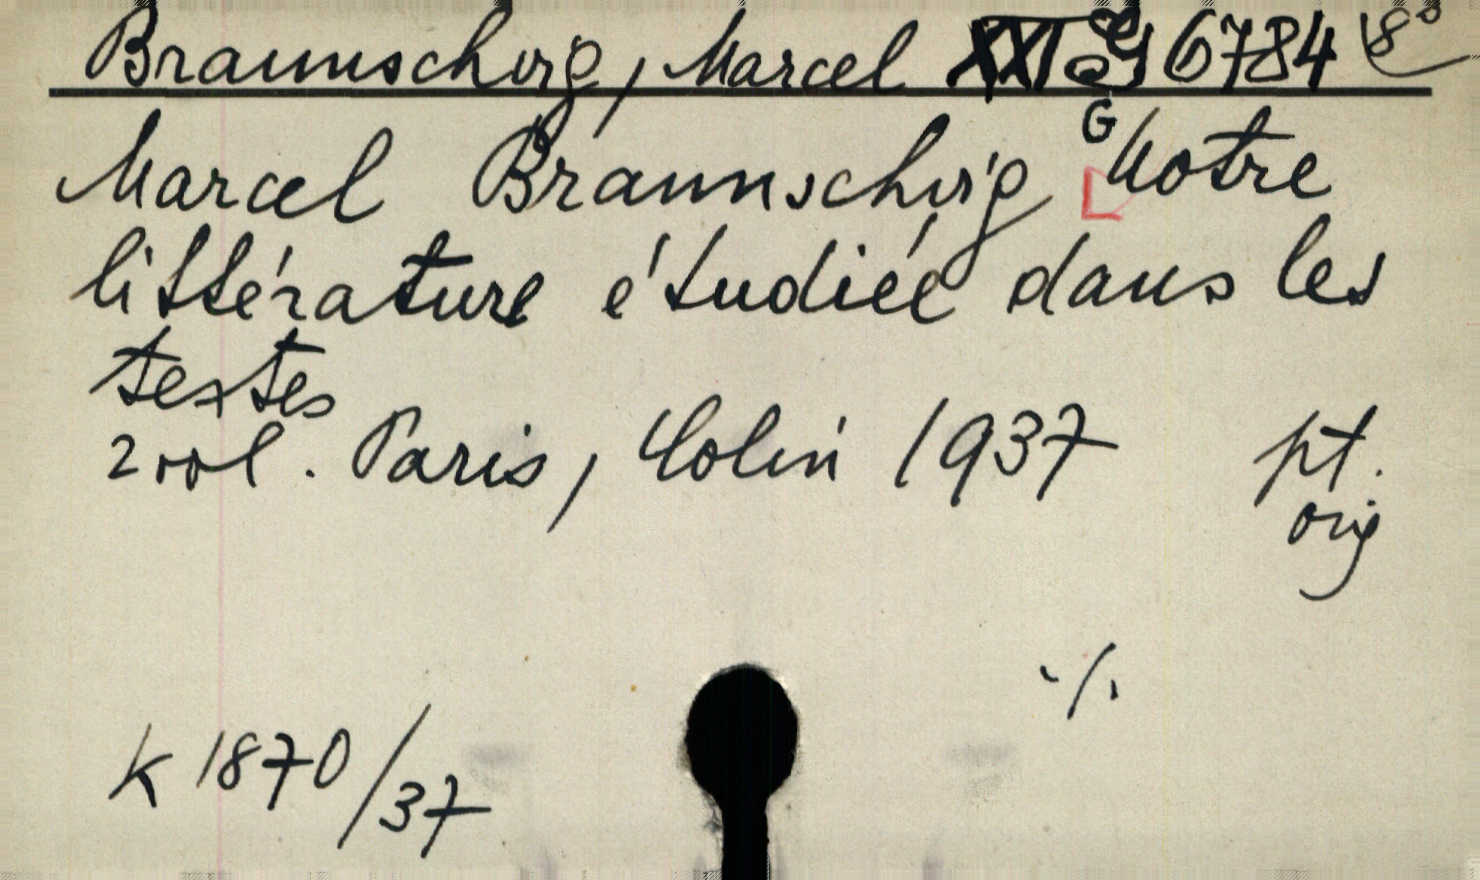 Braunschvig, Marcel XXI 6784 8°
G
Marcel Braunschvig Notre
littérature étudiée dans les
textes
2 vol. Paris, Colin 1937 pt.
orig
./.
K 1870/37